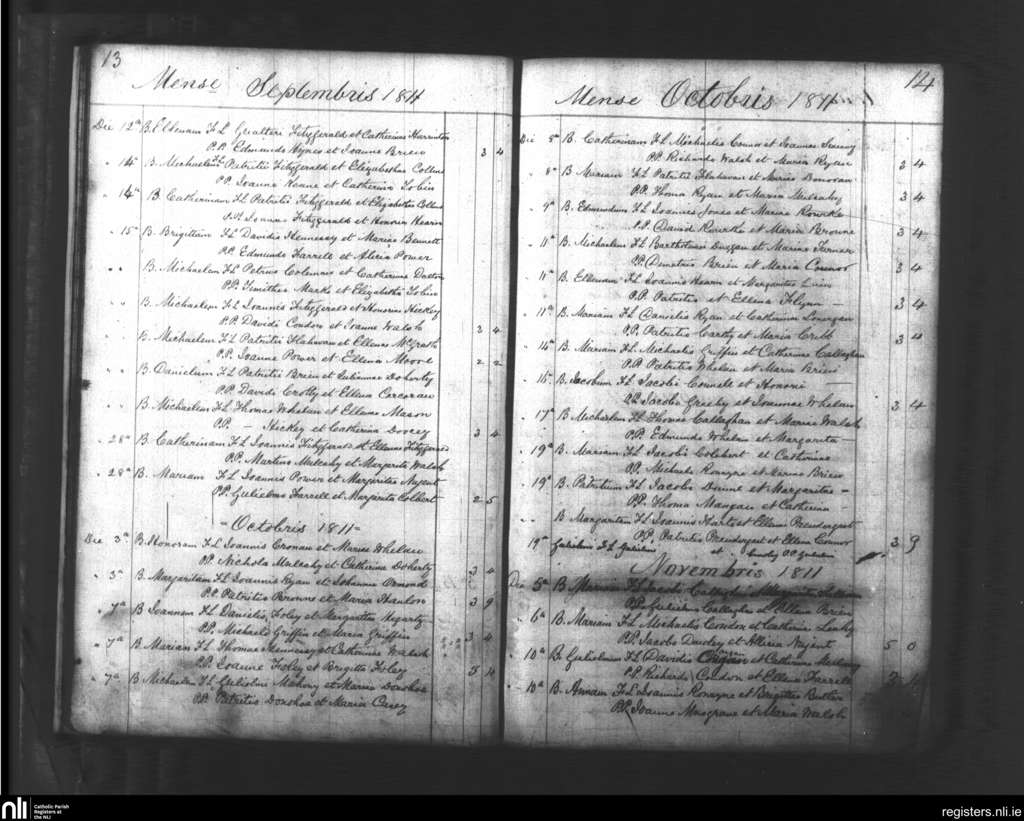 13
Mense Septembris 1811
Die 12a B. Ellenam F L Gualteri Fitzgerald et Catherinae Harrinton
P.P. Edmundo Hynes et Joanne Brien 3 4
" 14a B. Michaelem F L Patritii Fitzgerald et Elizabethae Collins
P.P. Joanne Keane et Catherina Tobin
" 14a B. Catherinam F L Patritii Fitzgerald et Elizabethae Collins
P.P. Joannes Fitzgerald et Honora Hearn
" 15a B. Brigittam F L Davidis Hennessy et Mariae Bennett
P.P. Edmundo Farrell et Alicia Power
" " B. Michaelem F L Petrus Colemns et Catherinae Dalton
P.P. Timotheo Marks et Elizabetha Tobin
" " B. Michaelem F L Joannis Fitzgerald et Honoriae Hickey
P.P. Davidi Condon et Joanne Walsh 3 4
B. Michaelem F L Patritii Flahavan et Ellenae McGrath
P.P. Joanne Power et Ellena Moore 2 2
" " B. Danielum F L Patritii Brien et Julianae Doherty
P.P. Davidi Crotty et Ellena Corcoran
" " B. Michaelem F L Thomae Whelan et Ellenae Mason
P.P. — Hickey et Catherina Doocey 3 4
" 28a B. Catherinam F L Joannis Fitzgerald et Ellenae Fitzgerald
P.P. Martino Mulcahy et Margarita Walsh
" 28a B. Mariam F L Joannis Power et Margaritae Nugent
P.P. Gulielmo Farrell et Margarita Colbert 2 5
Octobris 1811
Die 3a B. Honoram F L Joannis Cronan et Mariae Whelan
P.P. Nichola Mulcahy et Catherina Doherty 3 4
" 5a B. Margaritam F L Joannis Ryan et Johannae Ormond
P.P. Patritio Browne et Maria Shanlon 3 9
" 7a B. Joannem F L Danielis Foley et Margaritae Hegarty
P.P. Michaele Griffin et Maria Griffin 3 4
" 7a B. Mariam F L Thomae Hennessy et Catherinae Walsh
P.P. Joanne Foley et Brigitta Foley 5 4
" 7a B. Michaelem F L Gulielmi Mahony et Mariae Donohoe
P.P. Patritio Donohoe et Maria Casey
14
Mense Octobris 1811
Die 8a B. Catherinam F L Michaelis Connor et Joannae
P.P. Richardo Walsh et Maria Ryan 3 4
" 8a B. Mariam F L Patritii Flahavan et Mariae Donovan
P.P. Thoma Ryan et Maria Mulcahy 3 4
" 9a B. Edmundum F L Joannis Jones et Mariae Rourke
P.P. David Rourke et Maria Browne 3 4
" 11a B. Michaelem F L Bartholomei Duggan et Mariae Turner
P.P. Demetrio Brien et Maria Connor 3 4
" 11a B. Ellenam F L Joannis Hearn et Margaritae
P.P. Patritio et Ellena Flynn — 3 4
" 11a B. Mariam F L Danielis Ryan et Catherinae Lonergan
P.P. Patritio Carthy et Maria 3 4
" 14a B. Mariam F L Michaelis Griffin et Catherinae Callaghan
P.P. Patritio Whelan et Maria Brien
" 15a B. Jacobum F L Jacobi Connell et Honoriae —
P.P. Jacobo Greehy et Joannae Whelan 3 4
" 17a B. Michaelem F L Thomae Callaghan et Mariae Walsh
P.P. Edmundo Whelan et Margarita —
" 19a B. Mariam F L Jacobi Colebert et Catherinae
P.P. Michaele Ronayne et Maria Brien
" 19a B. Patritium F L Jacobi Dunne et Margaritae —
P.P. Thoma Mangan et Catherina —
" " B. Margaritam F L Joannis Hart et Ellenae Prendergast
P.P. Patritio Prendergast et Ellena Connor 3 9
19a Gulielmi F L Gulielmi et
Novembris 1811
Die 5a B. Mariam F L Jacobi et Margaritae
P.P. Gulielmo Callaghan et Ellena Brien
" 6a B. Mariam F L Michaelis Condon et Catherinae Leahy
P.P. Jacobo Dooley et Alicia Nugent 5 0
" 10a B. Gulielmum F L Davidis et Catherinae
P.P. Richardo Condon et Ellena Farrell
" 10a B. Annam F L Joannis Ronayne et Brigittae Butler
P.P. Joanne Musgrave et Maria Walsh
nli
Catholic Parish
Registers at
the NLI
registers.nli.ie